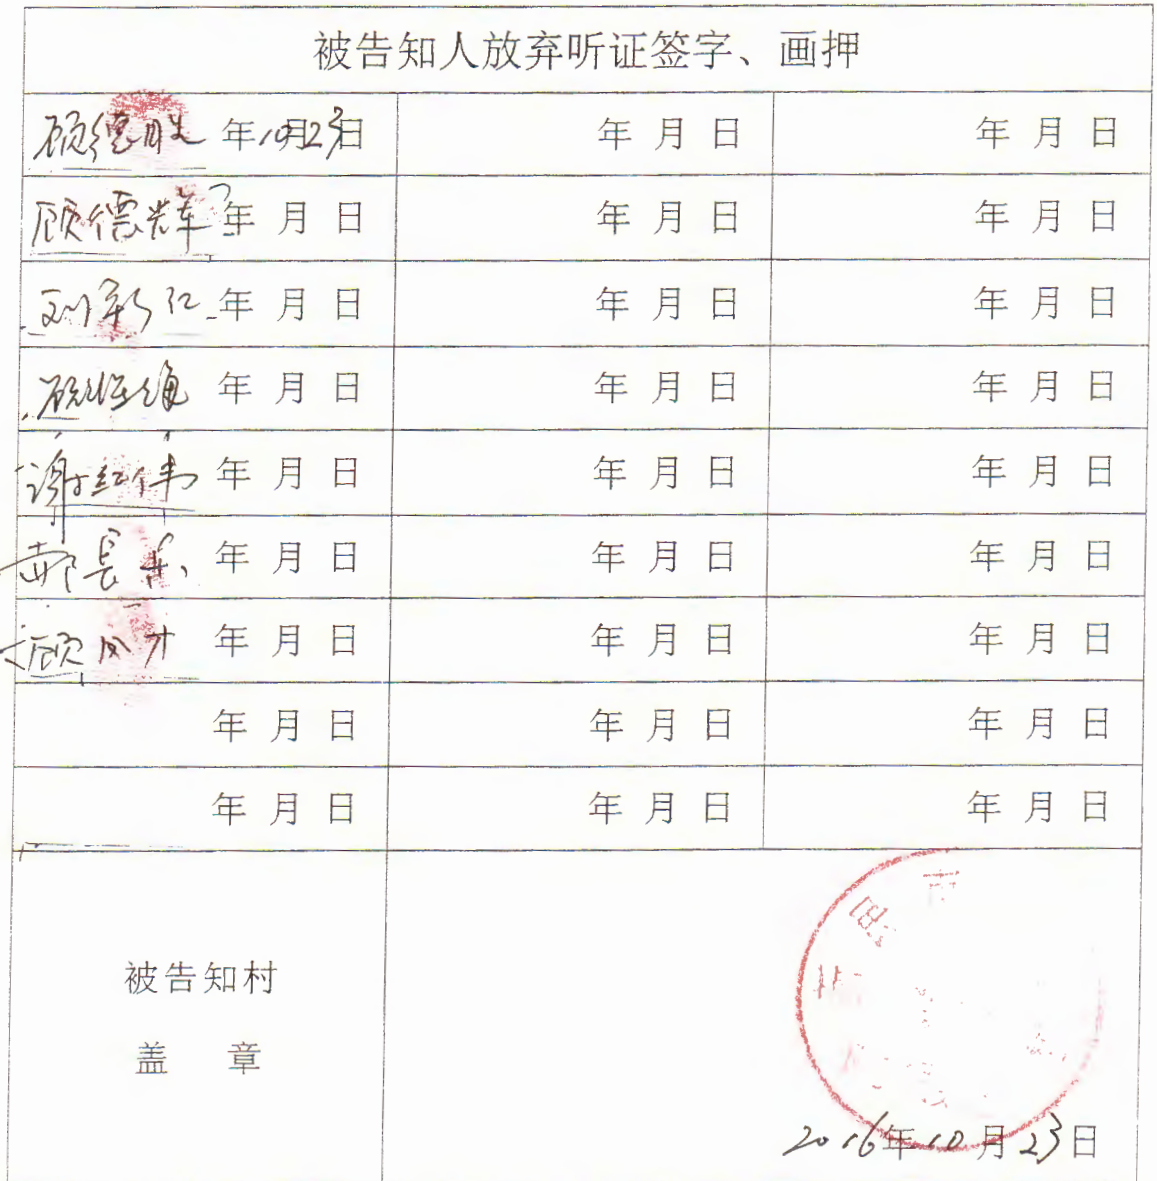 被告知人放弃听证签字、画押
顾德胜 年10月23日 年 月 日 年 月 日
顾德辉 年 月 日 年 月 日 年 月 日
刘新江 年 月 日 年 月 日 年 月 日
顾 年 月 日 年 月 日 年 月 日
谢红伟 年 月 日 年 月 日 年 月 日
郝长 年 月 日 年 月 日 年 月 日
顾凤才 年 月 日 年 月 日 年 月 日
年 月 日 年 月 日 年 月 日
年 月 日 年 月 日 年 月 日
被告知村
盖 章
2016年10月23日